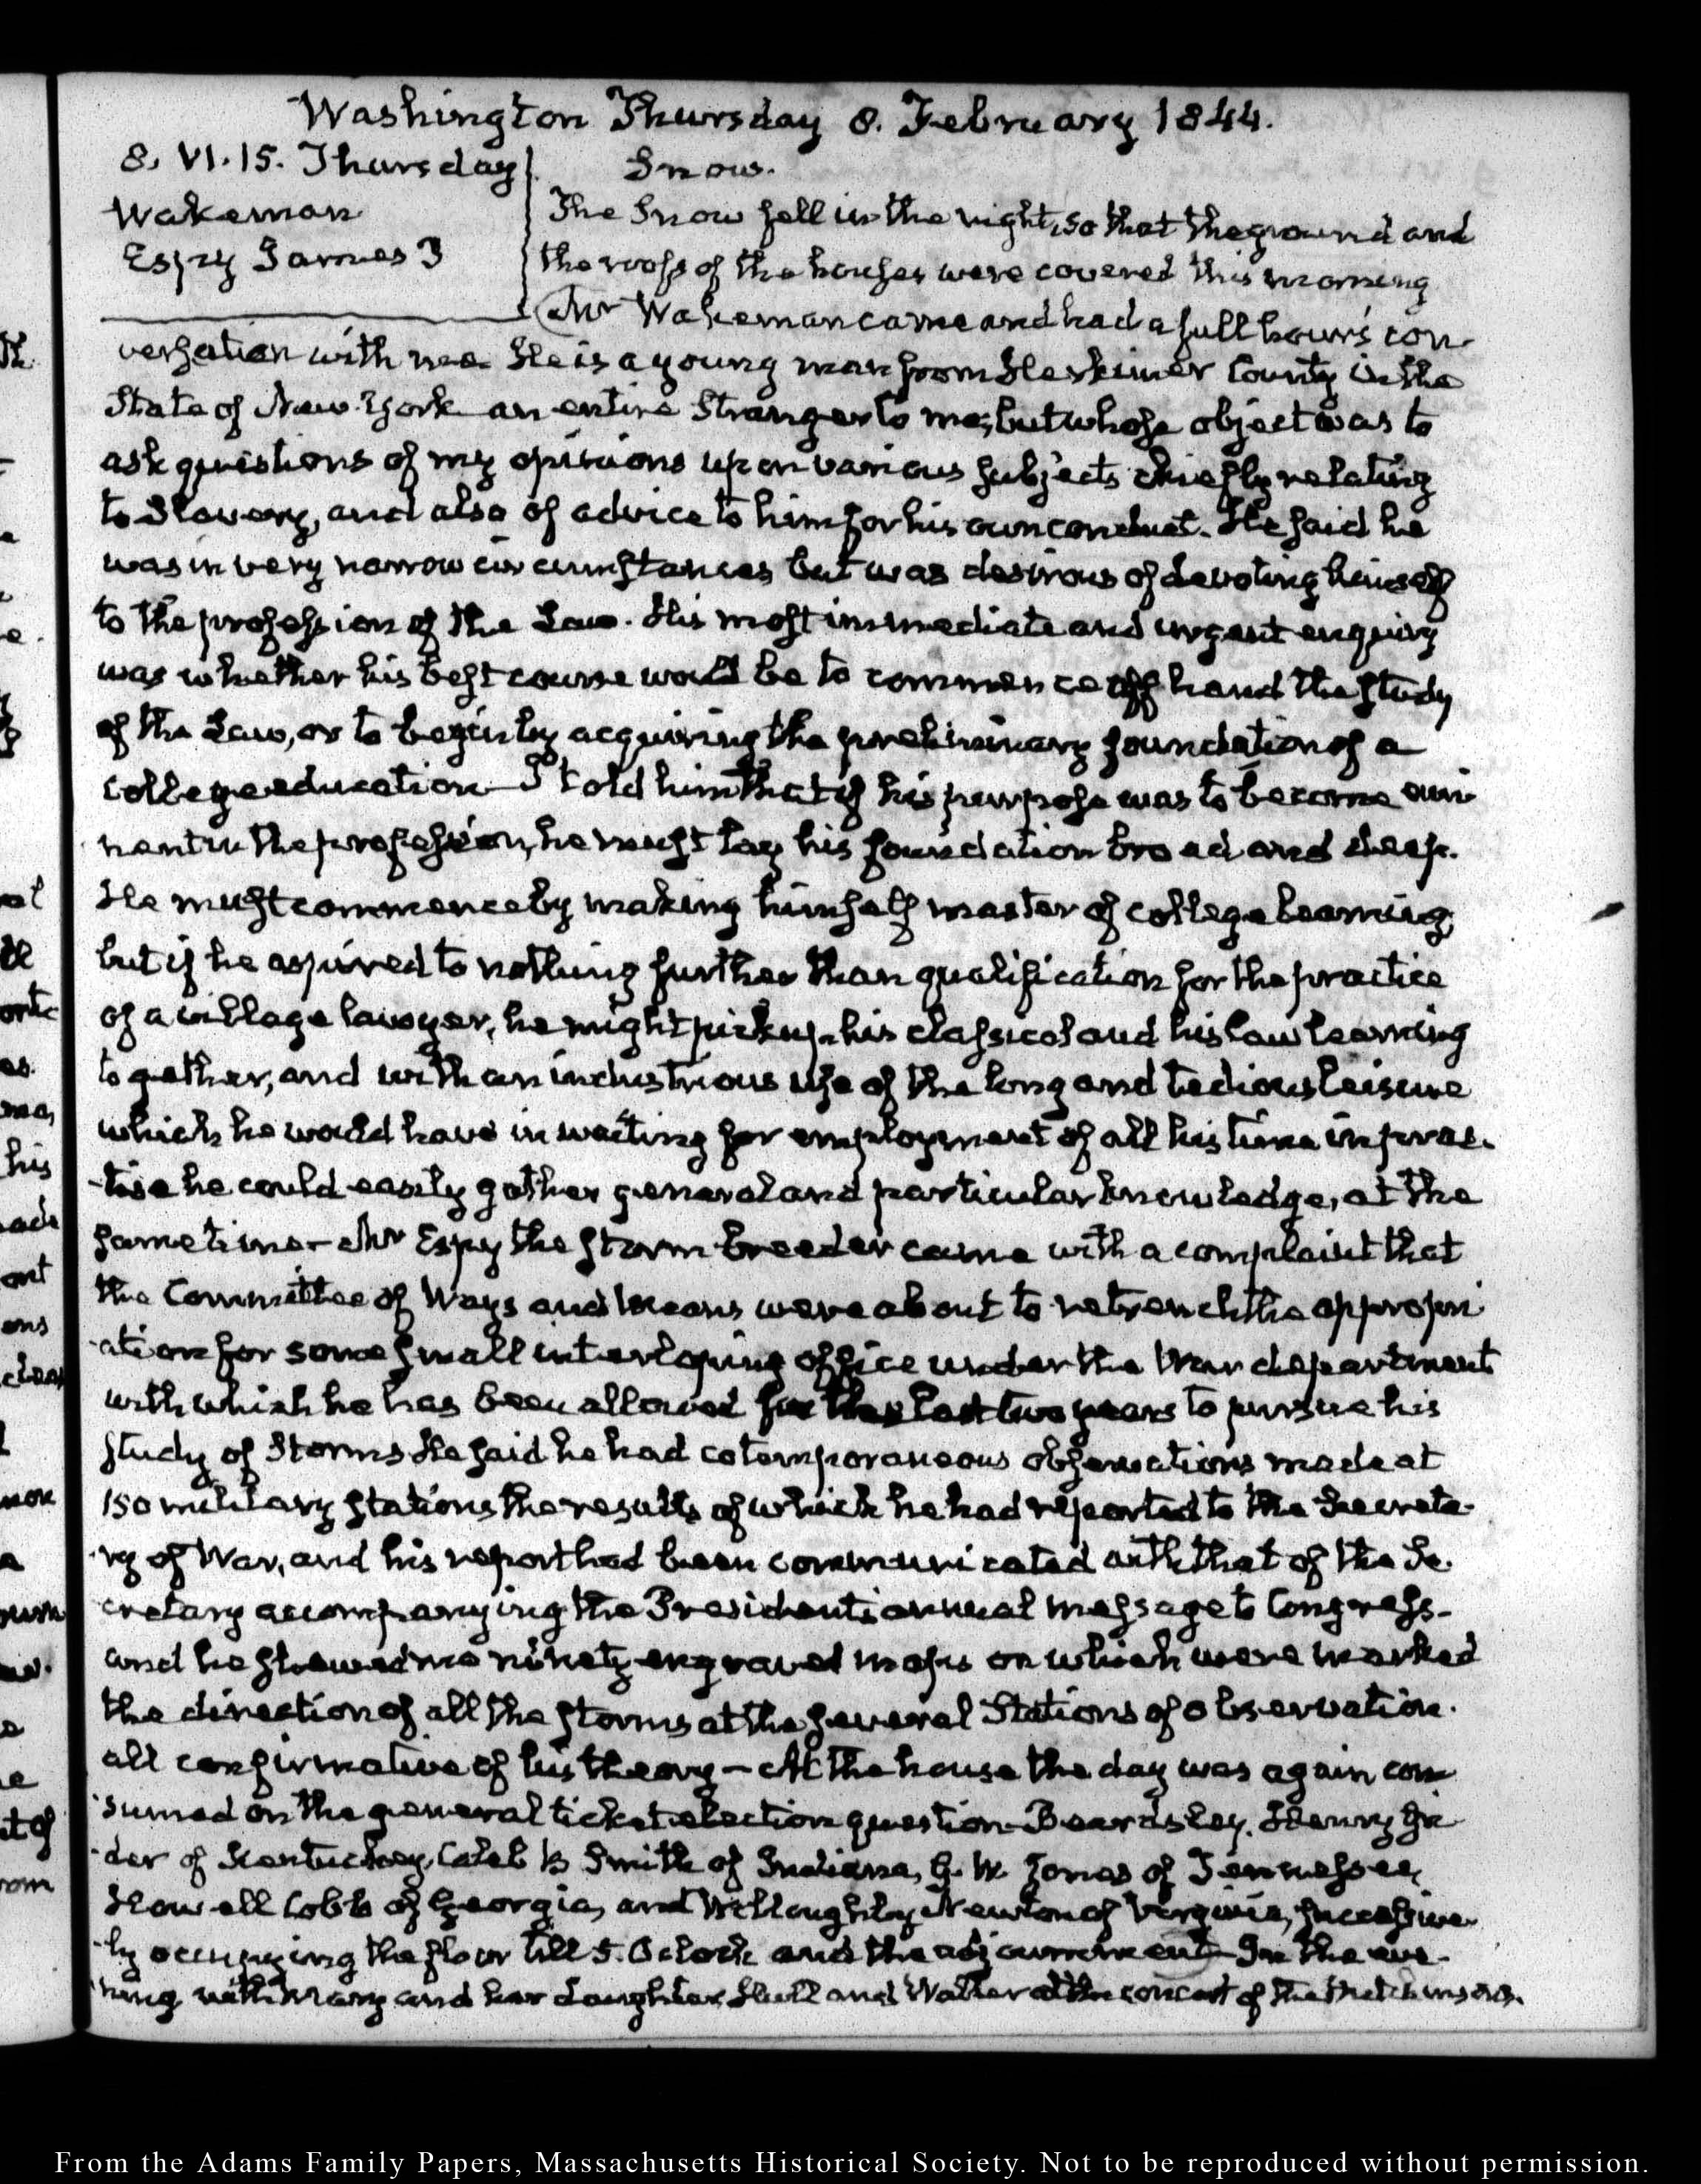 Washington Thursday 8. February 1844.
8. VI.15. Thursday
Wakeman
Espy James P
Snow.
The Snow fell in the night, so that the ground and
the roofs of the houses were covered this morning
Mr Wakeman came and had a full hour's con-
versation with me. He is a young man from Herkimer County in the
State of New-York an entire Stranger to me, but whose object was to
ask questions of my opinions upon various subjects chiefly relating
to Slavery, and also of advice to him for his own conduct. He said he
was in very narrow circumstances but was desirous of devoting himself
to the profession of the Law. His most immediate and urgent enquiry
was whether his best course would be to commence off hand the study
of the Law, or to begin by acquiring the preliminary foundation of a
college education— I told him that if his purpose was to become emi-
nent in the profession, he must lay his foundation broad and deep.
He must commence by making himself master of college learning,
but if he aspired to nothing further than qualification for the practice
of a village lawyer, he might pick up his classical and his law learning
together, and with an industrious use of the long and tedious leisure
which he would have in waiting for employment of all his time in prac-
-tise he could easily gather general and particular knowledge, at the
same time— Mr Espy the storm breeder came with a complaint that
the Committee of Ways and Means were about to retrench the appropri-
-ation for some small interloping office under the War department
with which he has been allowed for the last two years to pursue his
study of Storms He said he had cotemporaneous observations made at
150 military stations the results of which he had reported to the Secreta-
-ry of War, and his report had been communicated with that of the Se-
cretary accompanying the President's annual message to Congress—
and he shewed me ninety engraved maps on which were marked
the direction of all the storms at the several Stations of observation.
all confirmative of his theory— At the house the day was again con-
-sumed on the general ticket election question— Beardsley, Henry Gri-
-der of Kentucky, Caleb B Smith of Indiana, G. W. Jones of Tennessee,
Howell Cobb of Georgia, and Willoughby Newton of Virginia, successive-
-ly occupying the floor till 5. O'clock and the adjournment— In the eve-
-ning with Mary and her daughter Hull and Walter at the concert of the Hutchinsons.
From the Adams Family Papers, Massachusetts Historical Society. Not to be reproduced without permission.